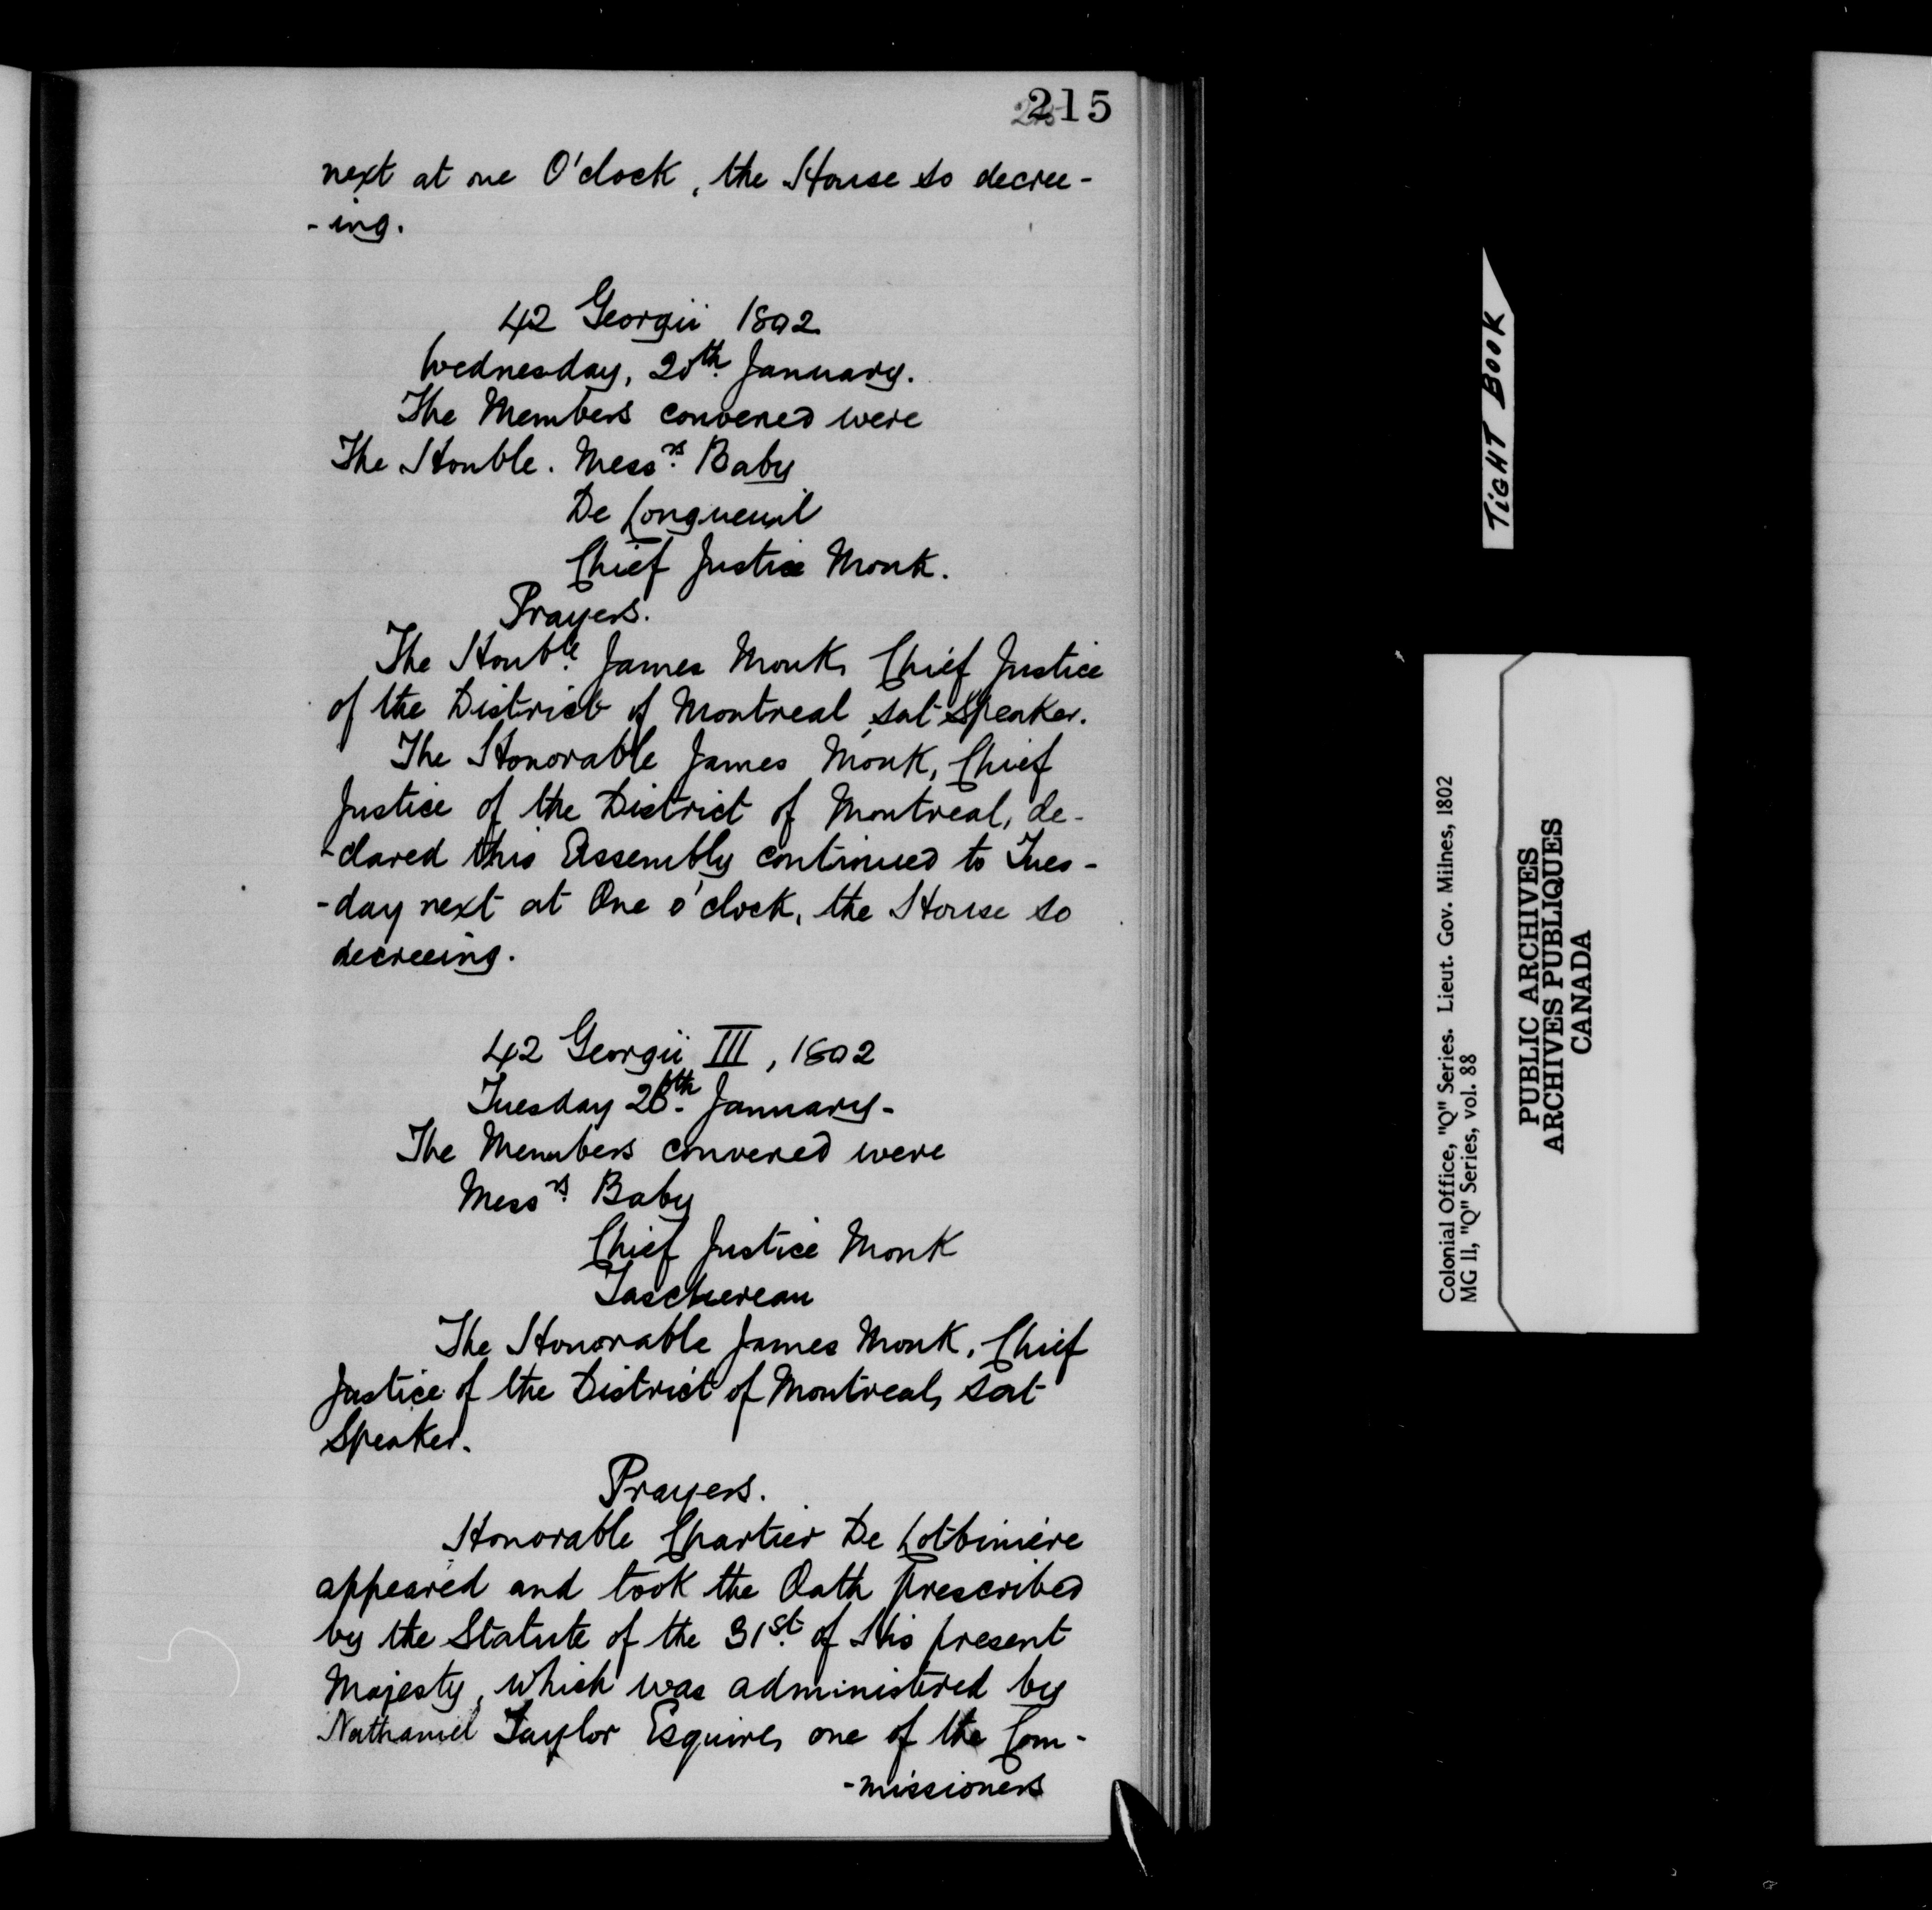 215
next at one O'clock, the House so decree-
-ing.
42 Georgii 1802
Wednesday, 20th January.
The Members convened were
The Honble. Messrs. Baby
De Longueuil
Chief Justice Monk.
Prayers.
The Honble. James Monk, Chief Justice
of the District of Montreal, sat Speaker.
The Honorable James Monk, Chief
Justice of the District of Montreal, de-
-clared this Assembly continued to Tues-
-day next at One o'clock, the House so
decreeing.
42 Georgii III, 1802
Tuesday 26th. January-
The Members convened were
Messrs. Baby
Chief Justice Monk
Taschereau
The Honorable James Monk, Chief
Justice of the District of Montreal, sat
Speaker.
Prayers.
Honorable Chartier De Lotbinière
appeared and took the Oath prescribed
by the Statute of the 31st. of His present
Majesty, which was administered by
Nathaniel Taylor Esquire, one of the Com-
-missioners
TIGHT BOOK
Colonial Office, "Q" Series. Lieut. Gov. Milnes, 1802
MG 11, "Q" Series, vol. 88
PUBLIC ARCHIVES
ARCHIVES PUBLIQUES
CANADA